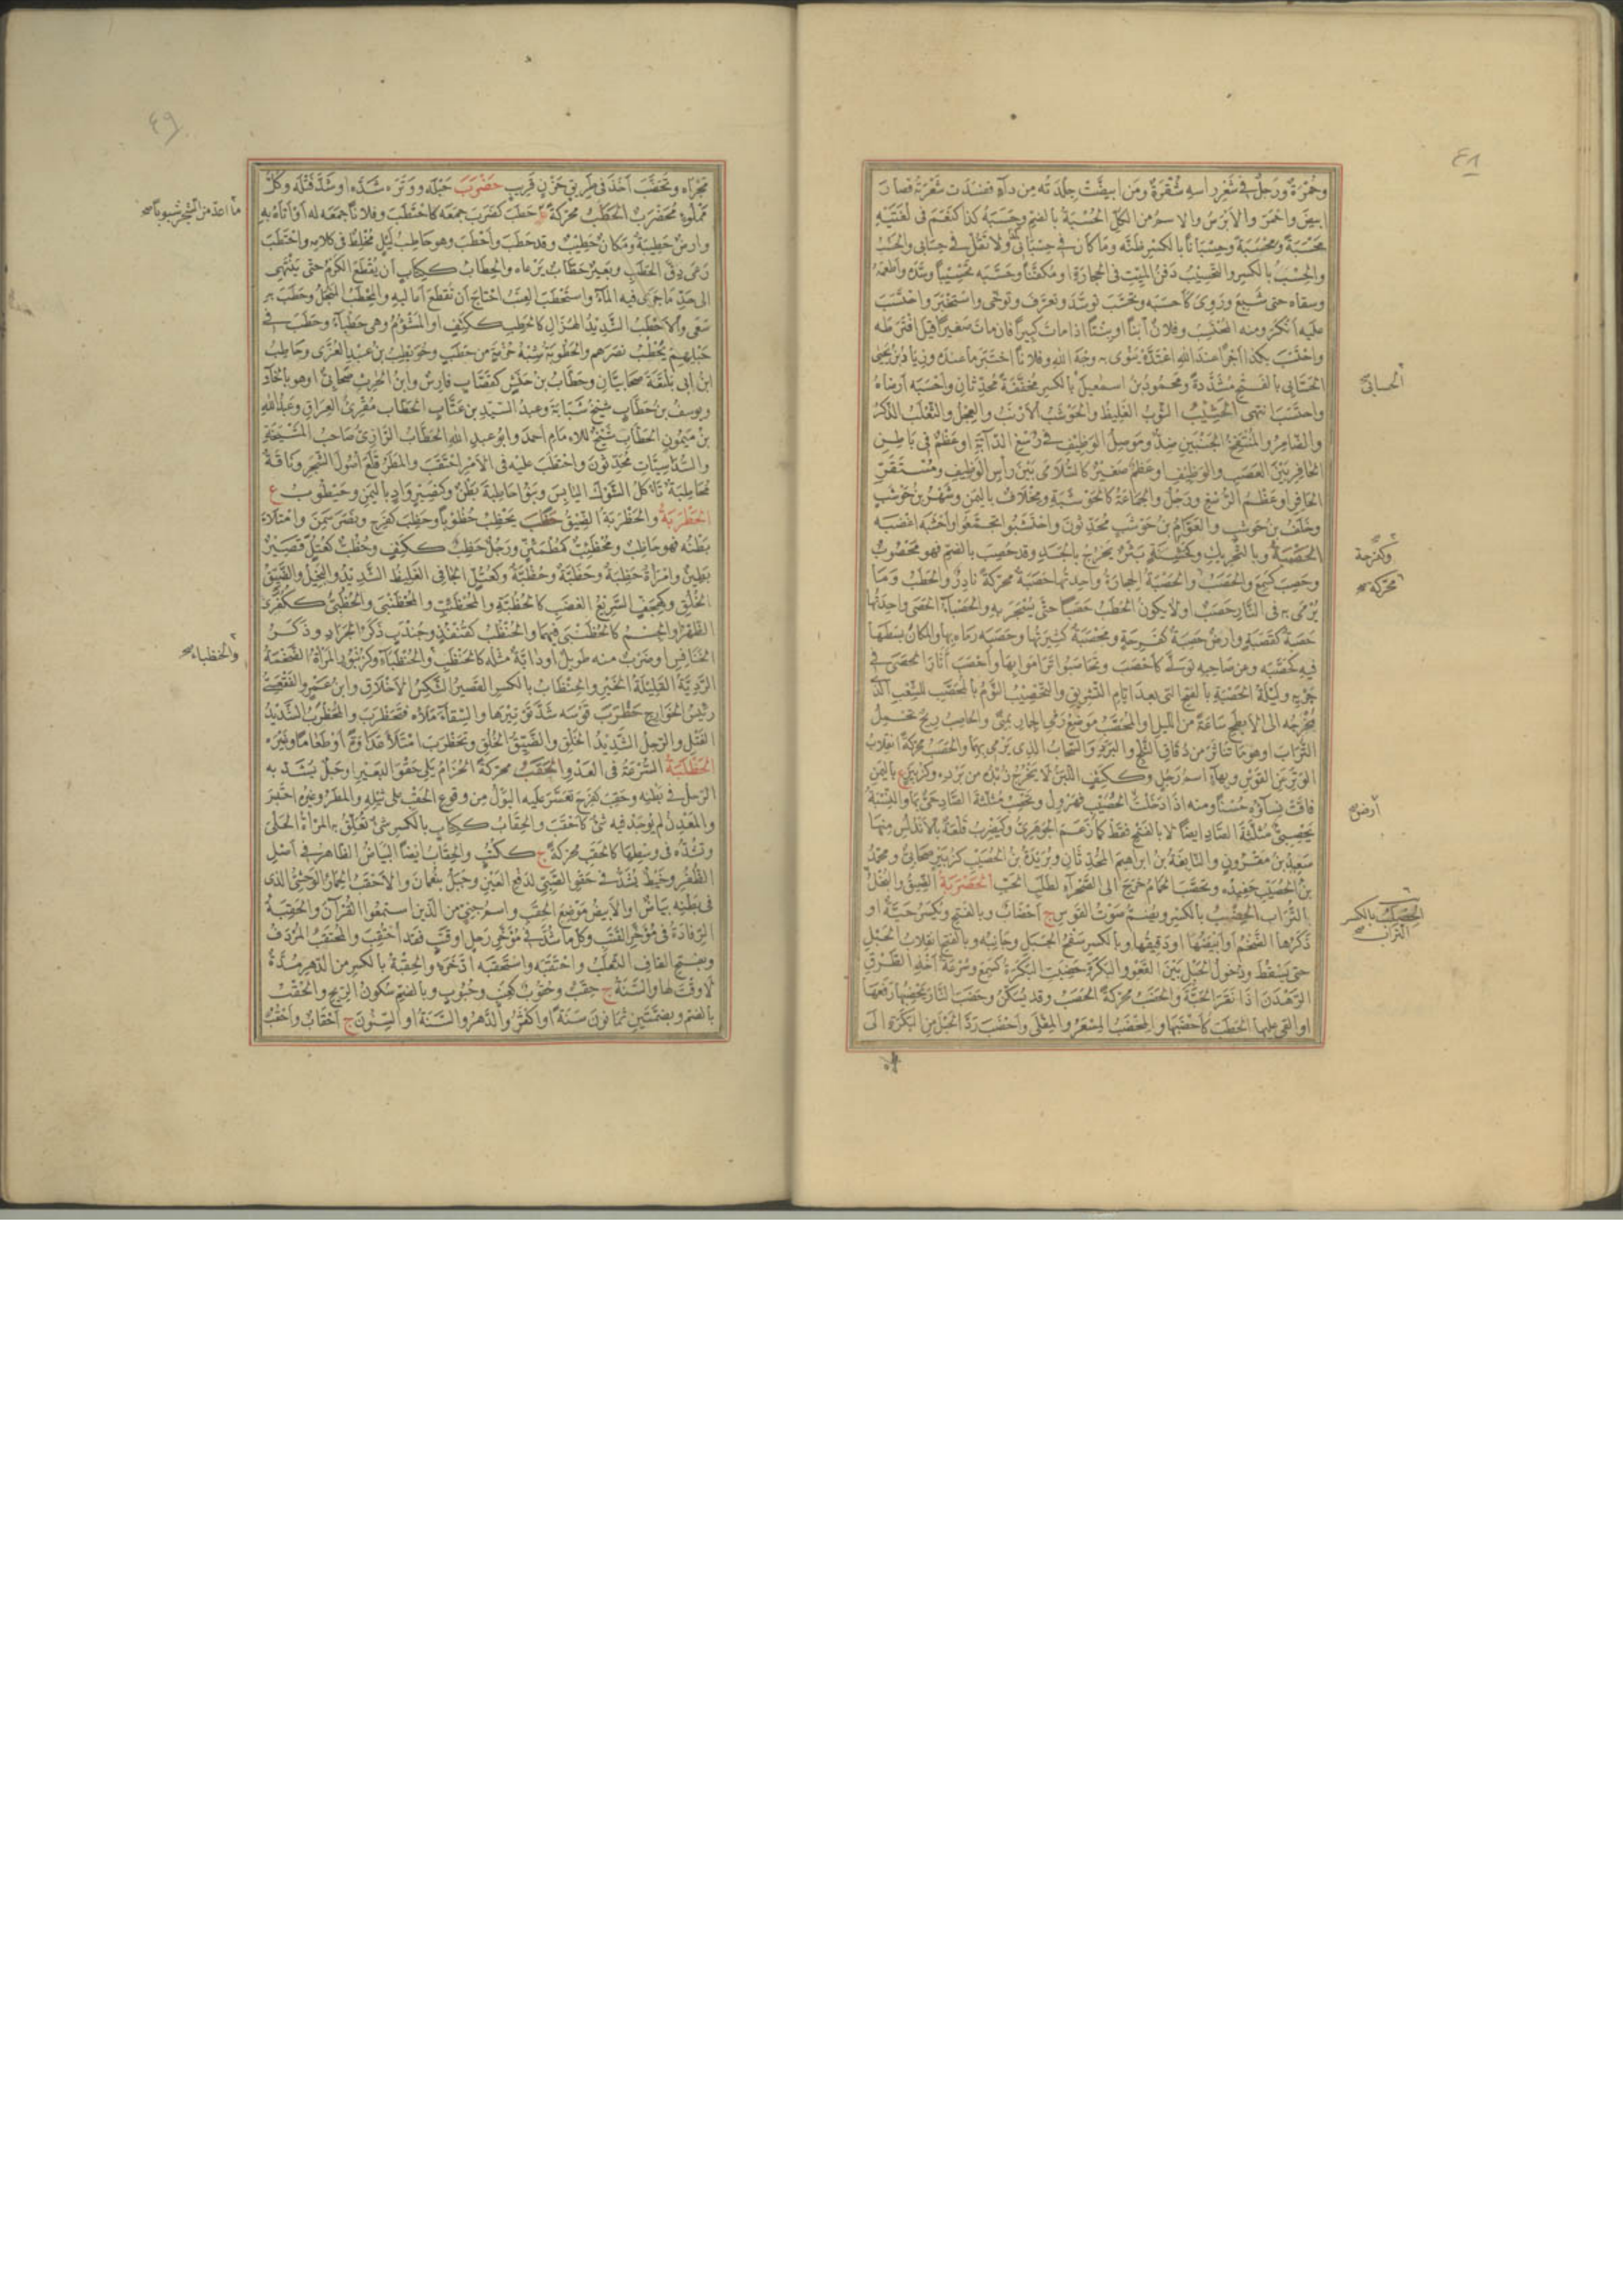 ٤٨
وحُمْرَةٌ ورَجلٌ في شَعَرِ راسِهِ شُقْرَةٌ ومَنِ ابيضَّتْ جِلْدَتُه مِن دآءٍ ففَسَدَت شَعْرَتُهُ فصارَ
ابيضَ واَحْمَرَ والأبْرَصُ والاسمُ من الكلِّ الحُسْبَةُ بالضم وحَسِبَهُ كذا كنَعِمَ في لُغَتَيْهِ
مَحْسَبَةً ومَحْسِبَةً وحِسْبَاناً بالكسرِ ظَنَّه وما كان في حِسْبَانِي ولا تَقُلْ في حِسَابي والحَسْبُ
والحِسْبَةُ بالكسر والتَحْسِيبُ دَفنُ الميّتِ في الحِجارَةِ او مُكَفَّناً وحَسَّبَه تَحْسِيباً وسَّدَه وأطْعَمَهُ
وسقاه حتى شَبِعَ ورَوِيَ كأحْسَبَه وتَحَسَّبَ تَوَسَّدَ وتَعَرَّفَ وتَوخَّى واسْتَخْبَرَ واحْتَسَبَ
عليه أنْكَرَ ومنه المُحْتَسِبُ وفلانٌ ابناً او بِنْتاً اذا ماتَ كبيراً فان ماتَ صغيراً قيل افْتَرَطَه
واحْتَسَبَ بكذا أجْراً عندَ الله اعْتَدَّه يَنْوي به وجْهَ الله وفلاناً اختَبَرَ ما عنده وزِيَادُ بنُ يحيى
الحَسَّانِي بالفتح مُشَدَّدةً ومحمودُ بنُ اسمعيلَ بالكسر مُخفَّفَةً مُحدّثانِ وأحْسَبَه أرضاهُ
واحتسَبَ انتهى الحَشِيبُ الثوبُ الغَليظُ والحَوْشَبُ الأرْنَبُ والعِجْلُ والثَعْلَبُ الذكَرُ
والضامِرُ والمُنْتَفِخُ الجَنْبَيْنِ ضِدٌّ ومَوصِلُ الوَظِيفِ في رُسْغِ الدّابَّةِ او عَظْمٌ في باطِنِ
الحافِرِ بَيْنَ العَصَبِ والوَظيفِ او عظمٌ صغيرٌ كالسُلامَى بَيْنَ رأسِ الوَظيفِ ومُسْتَقَرِّ
الحافِرِ او عَظْمُ الرُسْغِ ورَجُلٌ والجَماعَةُ كالحَوْشَبَةِ ومِخْلَافٌ باليَمَنِ وشَهْرُ بنُ حَوْشَبٍ
وخَلَفُ بن حَوشَبٍ والعَوَّامُ بنُ حَوشَبٍ مُحدّثونَ واحْتَشَبُوا تَجمَّعُوا واَحْشَبَهُ اغضَبَه
الحَصْبَةُ وبالتحريك وكفَرِحَةٍ بَثْرٌ يَخْرُجُ بالجَسَدِ وقد حُصِبَ بالضم فهو مَحْصُوبٌ
وحَصِبَ كسَمِعَ والحَصَبُ والحَصَبَةُ الحِجارَةُ واحدتُها حَصَبَةٌ محرّكةً نادِرٌ والحَطَبُ وما
يُرْمَى به في النَّارِ حَصَبٌ اولا يكون الحَطَبُ حَصَباً حتّى يُسْجَرَ به والحَصْبَاءُ الحَصَى واحِدَتُها
حَصَبَةٌ كقَصَبَةٍ وارضٌ حَصِبَةٌ كفَرِحَةٍ ومَحْصَبَةٌ كثيرتُها وحَصَبَه رماه بها والمكانَ بسَطَها
فيه كحَصَّبَه وعن صاحبه تولّى كأحْصَبَ وتَحاصَبُوا تَرامَوْا بها وأحْصَبَ أثارَ الحَصَى في
جَرْيِهِ ولَيْلَةُ الحَصْبَةِ بالفتح التى بعدَ ايّامِ التَشْرِيقِ والتَحْصِيبُ النَّوْمُ بالمُحَصَّبِ الشِّعْبِ الذي
مَخْرَجُه الى الأبطَحِ ساعَةً من الليلِ او المُحَصَّبُ مَوضعُ رَمْيِ الجِمارِ بمِنًى والحاصِبُ رِيحٌ تَحْمِلُ
التُّرَابَ او هو ما تَناثَرَ من دُقاقِ الثَّلْجِ والبَرَدِ والسَّحابُ الذى يَرْمى بهما والحَصَبُ محرّكةً انقِلابُ
الوَتَرِ عن القَوْسِ وبهاءٍ اسمُ رَجُلٍ وككَتِفٍ اللَّبَنُ لا يَخْرُجُ زُبْدُه من بَرْدِه وكزُبَيْرٍ ع باليَمَنِ
فاقَتْ نِساؤُه حُسْناً ومنه اذا دَخَلْتَ الحُصَيْبَ فَهَرْوِلْ ويَحْصِبُ مُثَلَّثَةَ الصّادِ حَيٌّ بها والنِّسْبَةُ
يَحْصِبِيٌّ مُثلّثةَ الصّادِ ايضاً لا بالفتحِ فقط كما زَعَمَ الجوهريُّ وكيَضْرِبُ قَلْعَةٌ بالأنْدَلُسِ منها
سَعِيدُ بنُ مَقْرُونٍ والنّابِغَةُ بنُ ابراهيمَ المُحدّثانِ وبُرَيْدَةُ بنُ الحُصَيْبِ كزُبَيْرٍ صَحابِيٌّ ومحمّدُ
بنُ الحُصَيْبِ حَفِيدُه وتَحَصَّبَ الحَمامُ خَرَجَ الى الصَّحْرَآءِ لطَلَبِ الحَبِّ الحَصْرَبَةُ الضِّيقُ والبُخْلُ
بالتُّرابِ الحِضْبُ بالكسر ويُضَمُّ صَوْتُ القَوْسِ ج أحْضَابٌ وبالفتح ويُكْسَرُ حَيَّةٌ او
ذَكَرُها الضَّخْمُ أو أبْيَضُها او دَقِيقُها وبالكسرِ سَفْحُ الجَبَلِ وجَانِبُه وبالفتحِ انقِلابُ الحَبْلِ
حتى يَسْقُطَ ودُخولُ الحَبْلِ بَيْنَ القَعْوِ والبَكْرَةِ حَضِبَتِ البَكْرَةُ كسَمِعَ وسُرْعَةُ أخْذِ الطَّرْقِ
الرَّهْدَنَ اذا نَقَرَ الحَبَّةَ والحَضَبُ محرّكةً الحَصَبُ وقد يُسَكَّنُ وحَضَبَ النَّارَ يَحْضِبُها رَفَعَها
او القى عليها الحَطَبَ كأحْضَبَها والمِحْضَبُ المِسْعَرُ والمِقْلَى وأحْضَبَ رَدَّ الحَبْلَ مِن البَكْرَةِ الى
الحسانيّ
وكفرحة
محرّكة صح
أرض
الحِصْلِبُ بالكسر
التراب صح
٤٩
مَجْراه وتَحَضَّبَ أخَذَ فى طَرِيقٍ حَزْنٍ قَرِيبٍ حَضْرَبَ حَبْلَه ووَتَرَه شَدَّه او شَدَّ فَتْلَه وكُلُّ
مَمْلُوءٍ مُحَضْرَبٌ الحَطَبُ محرّكةً م حَطَبَ كضَرَبَ جَمَعَه كاحْتَطَبَ وفلاناً جَمَعَه له أوْ أتاهُ به
وارضٌ حَطِيبَةٌ ومَكانٌ حَطِيبٌ وقد حَطَبَ وأحْطَبَ وهو حاطِبُ لَيْلٍ مُخَلِّطٌ فى كلامِه واحْتَطَبَ
رَعَى دِقَّ الحَطَبِ وبَعِيرٌ حَطَّابٌ يَرْعاه والحِطابُ ككِتابٍ أن يُقْطَعَ الكَرْمُ حتّى يَنْتَهِىَ
الى حَدِّ ما جَرَى فيه المآءُ واستَحْطَبَ العِنَبُ احْتاجَ أن تُقْطَعَ أعالِيهِ والمِحْطَبُ المِنْجَلُ وحَطَبَ به
سَعَى والأحْطَبُ الشَّديدُ الهُزالِ كالحَطِبِ ككَتِفٍ او المَشْؤُمُ وهى حَطْبَاءُ وحَطَبَ فى
حَبْلِهِمْ يَحْطِبُ نَصَرَهم والحَطُوبَةُ شِبْهُ حُزْمَةٍ من حَطَبٍ وحُوَيْطِبُ بنُ عبدِ العُزَّى وحاطِبُ
ابنُ ابى بَلْتَعَةَ صَحابِيّانِ وحَطَّابُ بن حَنَشٍ كقَصَّابٍ فارِسٌ وابنُ الحٰرِثِ صَحابِىٌّ او هو بالخَاءِ
ويوسفُ بن حَطَّابٍ شَيْخُ شَبَابَةَ وعبدُ السَّيّدِ بن عَتَّابٍ الحَطَّاب مُقْرِئُ العِراقِ وعَبدُ اللهِ
بنُ مَيْمُونٍ الحَطَّابُ شَيْخٌ للامامِ أحمدَ وابو عبدِ اللهِ الحَطَّابُ الرَّازِىُّ صاحبُ المَشْيَخَةِ
والسُّداسِيّاتِ مُحدّثونَ واحْتَطَبَ عليه فى الأمْرِ احْتَقَبَ والمَطَرُ قَلَعَ أُصُولَ الشَّجَرِ ونَاقَةٌ
مُحاطِبَةٌ تَأكُلُ الشَّوْكَ اليابِسَ وبَنُو حاطِبَةَ بَطْنٌ وكنَصِيرٍ وادٍ باليَمَنِ وحَيْطُوبُ ع
الحَظْرَبَةُ والحَظْرَبَةُ الضِّيقُ حَظَبَ يَحْظِبُ حُظُوباً وحَظِبَ كفَرِحَ ونَصَرَ سَمِنَ وامْتَلأ
بَطْنُه فهو حاظِبٌ ومُحْظَئِبٌّ كمُطْمَئِنٍّ ورَجُلٌ حَظِبٌ ككَتِفٍ وحُظُبٌّ كعُتُلٍّ قَصِيرٌ
بَطِينٌ وامْرأةٌ حَظِبَةٌ وحِظَبَّةٌ وحُظُبَّةٌ وكعُتُلٍّ الجافِى الغَليظُ الشَّديدُ والبَخيلُ والضَّيِّقُ
الخُلُقِ وكهِجَفٍّ السَّريعُ الغَضَبِ كالحُظُبَّةِ والمُحْظَئِبِّ والمُحْظَنْبى والحُظُبَّى ككُفُرَّى
الظَّهْرُ والجِسْمُ كالحُظُنْبَى فيهما والحُنْظُبُ كقُنْفُذٍ وجُنْدَبٍ ذَكَرُ الجَرادِ وذَكَرُ
الخَنافِسِ او ضَرْبٌ منه طَوِيلٌ او دابَّةٌ مثلُه كالحُنْظَبِ والحُنْظَبَاءِ وكزُنْبُورٍ المَرْأةُ الضَّخْمَةُ
الرَّدِيَّةُ القَلِيلَةُ الخَيْرِ والحِنْظَابُ بالكسر القَصِيرُ الشَّكِسُ الأخْلاقِ وابنُ عَمْرٍو الفَقْعَسِىُّ
رَئيسُ الخَوارِجِ حَظْرَبَ قَوْسَه شَدَّ تَوْتِيرَها والسِّقاءَ مَلأه فتَحَظْرَبَ والمُحَظْرَبُ الشَّديدُ
الفَتْلِ والرَّجُلُ الشَّدِيدُ الخَلْقِ والضَّيِّقُ الخُلُقِ وتَحَظْرَبَ امْتَلأ عَدَاوَةً أوْ طَعاماً وغَيْرَه
الحَظْلَبَةُ السُّرْعَةُ فى العَدْوِ الحَقَبُ محرّكةً الحِزامُ يَلى حَقْوَ البَعيرِ او حَبْلٌ يُشَدُّ به
الرَّحْلُ فى بَطْنِه وحَقِبَ كفَرِحَ تعَسَّرَ عليه البَوْلُ مِن وقوعِ الحَقَبِ على ثِيلِهِ والمَطَرُ وغيرُه احْتَبَسَ
والمَعْدِنُ لم يُوجَدْ فيه شئٌ كأحْقَبَ والحِقابُ ككِتابٍ بالكسرِ شئٌ تُعَلِّقُ به المَرْأةُ الحَلْىَ
وتَشُدُّه فى وسَطِها كالحَقَبِ محرّكةً ج ككُتُبٍ والحِقابُ ايضاً البَياضُ الظاهرُ فى أصْلِ
الظُّفُرِ وخَيْطٌ يُشَدُّ فى حَقْوِ الصَّبِىِّ لدَفعِ العَيْنِ وجَبَلٌ بنُعْمانَ والأحْقَبُ الحِمارُ الوَحْشِىُّ الذى
فى بَطْنِه بَيَاضٌ او الأبيضُ مَوضعِ الحَقَبِ واسمُ جِنِّىٍّ من الذين استمعُوا القُرْآنَ والحَقِيبَةُ
الرِّفادَةُ فى مُؤَخَّرِ القَتَبِ وكلُّ ما شُدَّ فى مُؤَخَّرِ رَحْلٍ او قَتَبٍ فقد احْتُقِبَ والمُحْقَبُ المُرْدَفُ
وبفتحِ القافِ الثَّعْلَبُ واحْتَقَبَه واستَحْقَبَه ادَّخَرَه والحِقْبَةُ بالكسرِ من الدّهرِ مُدَّةٌ
لا وَقْتَ لها والسَّنَةُ ج حِقَبٌ وحُقُوبٌ كعِنَبٍ وحُبُوبٍ وبالضمِّ سُكونُ الرِّيحِ والحُقْبُ
بالضم وبضمَّتَيْنِ ثمانونَ سَنَةً او أكثَرُ والدَّهْرُ والسَّنَةُ او السِّنُونَ ج أحْقابٌ وأحْقُبٌ
والحظباء صح